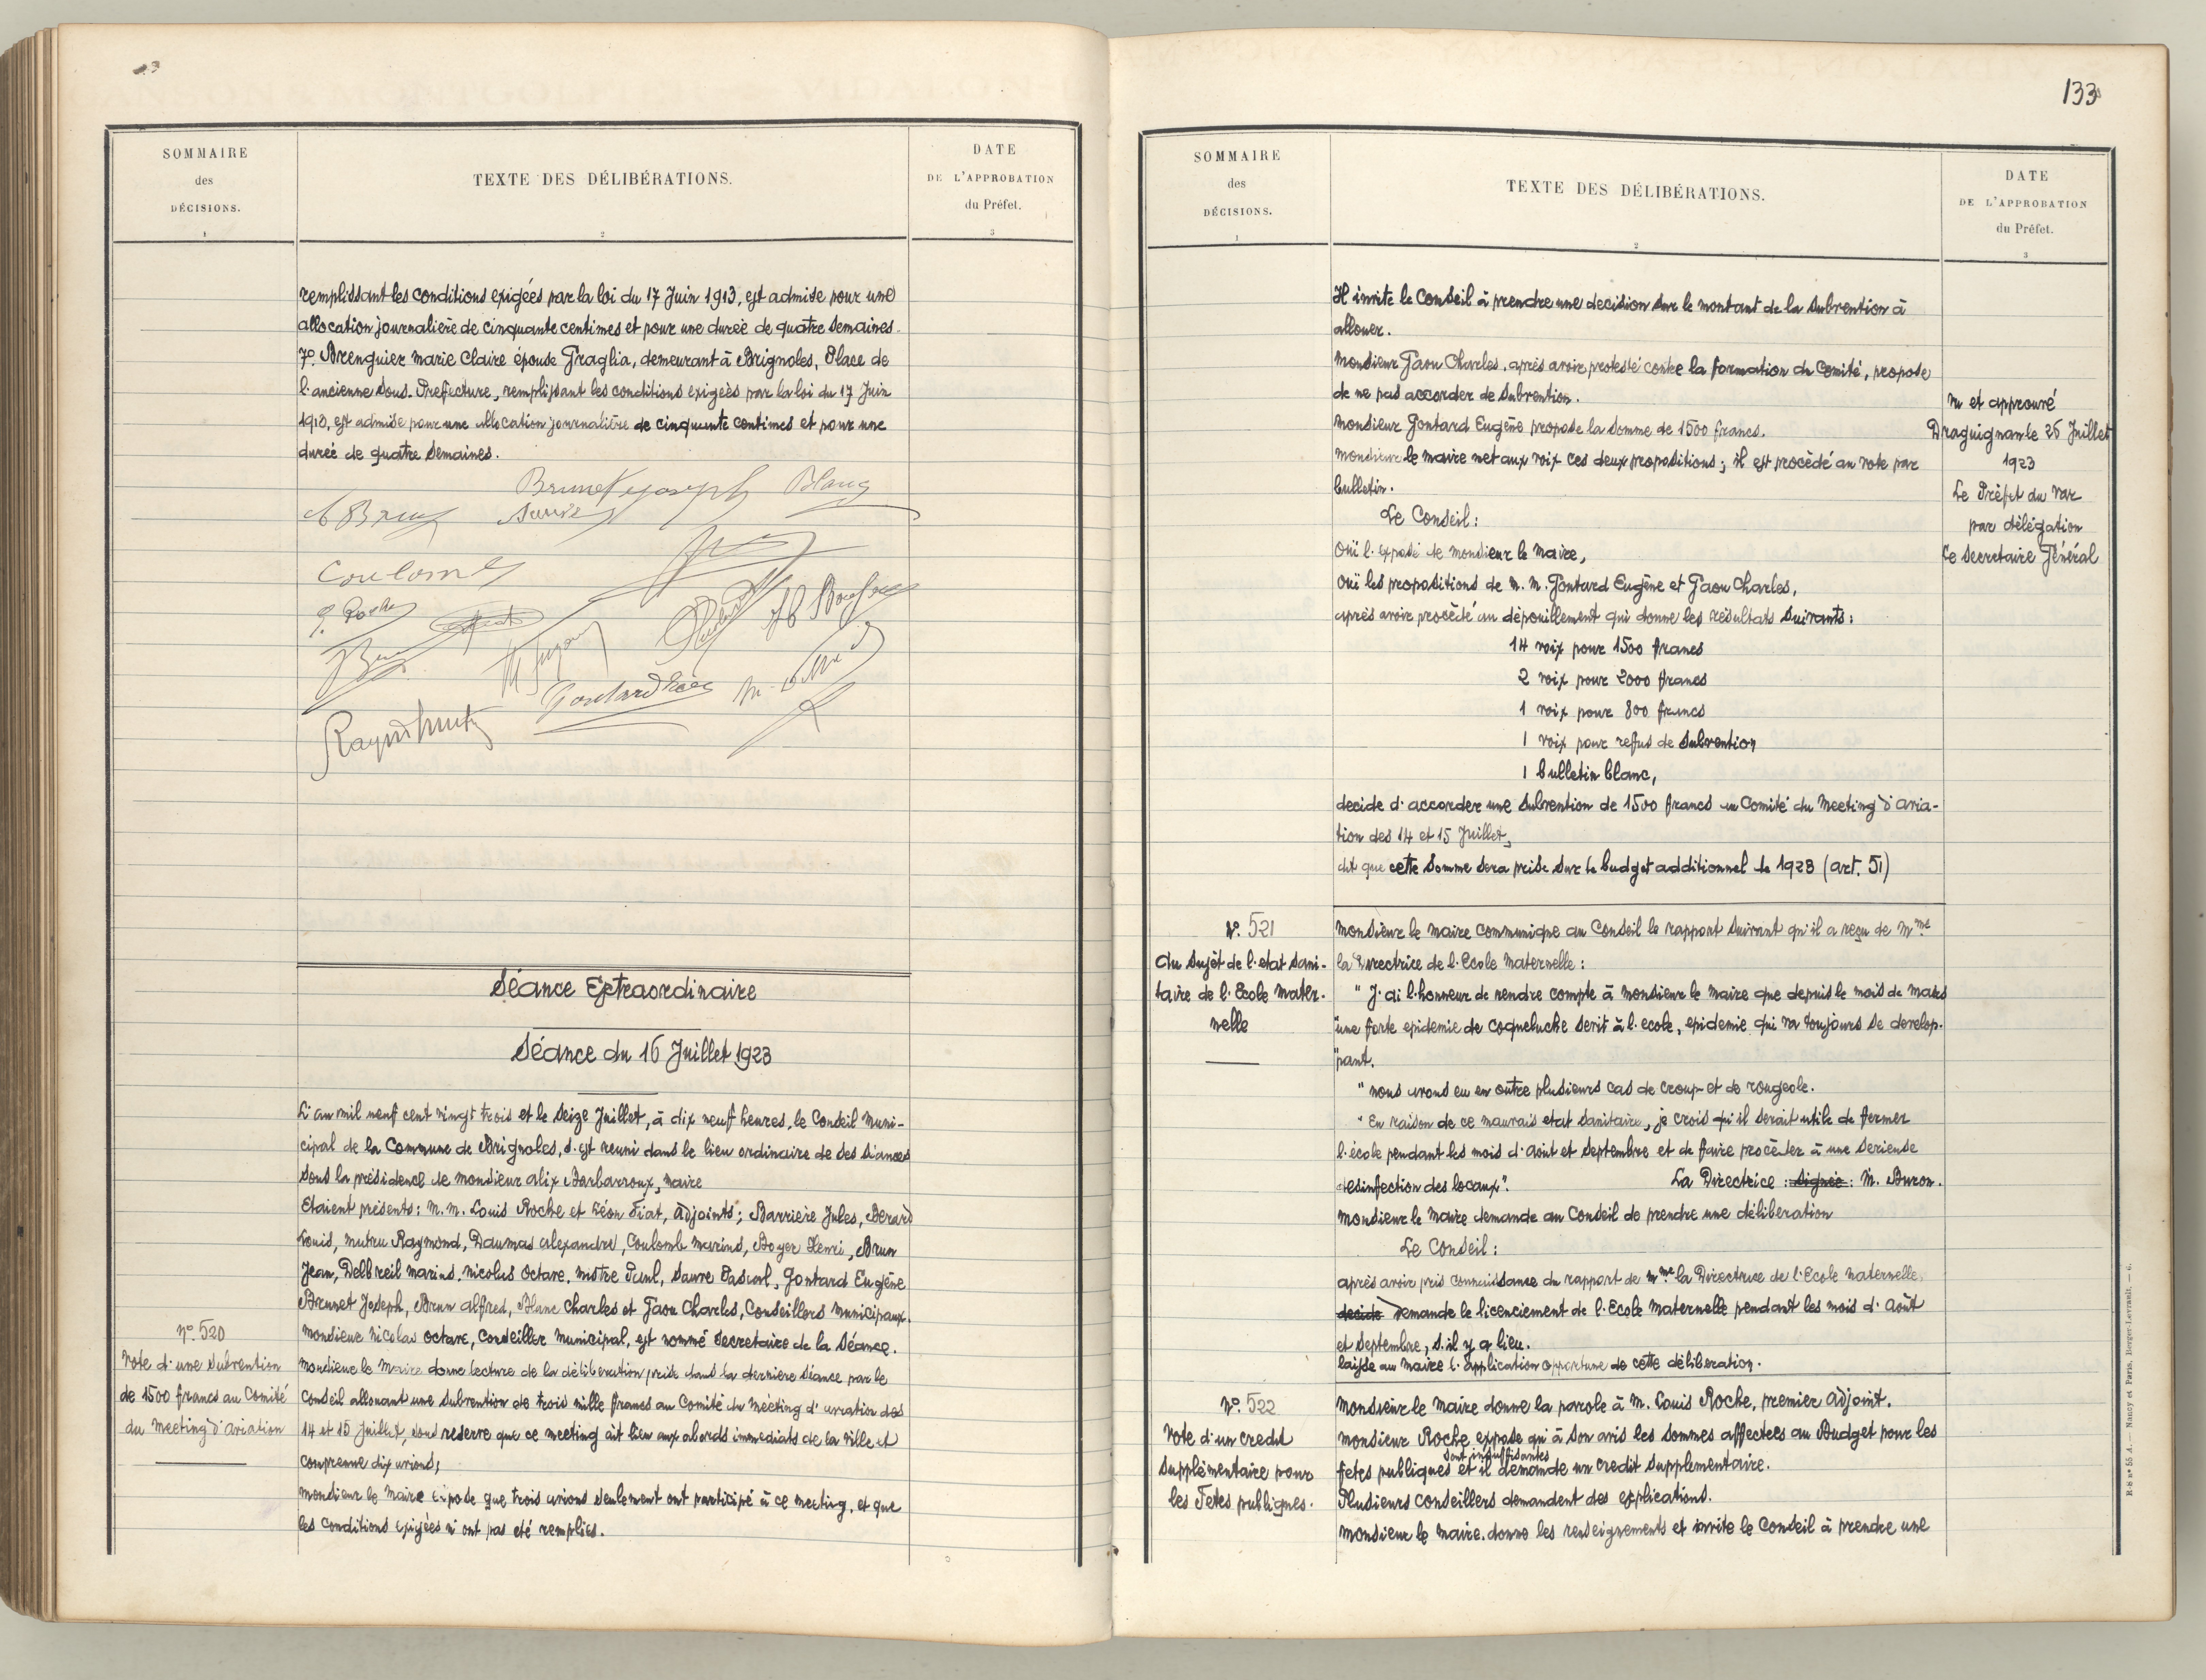 SOMMAIRE
des
DÉCISIONS.
1
TEXTE DES DÉLIBÉRATIONS.
2
DATE
DE L'APPROBATION
du Préfet.
3
remplissant les conditions exigées par la loi du 17 Juin 1913, est admise pour une
allocation journalière de cinquante centimes et pour une durée de quatre semaines.
7º. Brenguier Marie Claire épouse Graglia, demeurant à Brignoles, Place de
l'ancienne Sous-Prefecture, remplissant les conditions exigées par la loi du 17 Juin
1913, est admise pour une allocation journalière de cinquante centimes et pour une
durée de quatre semaines.
Brunet Joseph Blanc
Coulomb
Séance Extraordinaire
Séance du 16 Juillet 1923
L'an mil neuf cent vingt trois et le seize Juillet, à dix neuf heures, le Conseil Muni-
cipal de la Commune de Brignoles, s'est reuni dans le lieu ordinaire de ses séances
sous la présidence de Monsieur Alix Barbarroux, Maire
Etaient présents: M.M. Louis Roche et Léon Fiat, Adjoints; Barrière Jules, Berard
Louis, Mutru Raymond, Daumas Alexandre, Coulomb Marius, Boyer Henri, Brun
Jean, Delbreil Marius, Nicolas Octave, Mistre Paul, Sauve Pascal, Gontard Eugène
Brunet Joseph, Brun Alfred, Blanc Charles et Gaou Charles, Conseillers Municipaux.
Monsieur Nicolas Octave, Conseiller Municipal, est nommé Secretaire de la Séance.
Nº. 520
Vote d'une Subvention
de 1500 francs au Comité
du Meeting d'Aviation
Monsieur le Maire donne lecture de la délibération prise dans la dernière séance par le
Conseil allouant une subvention de trois mille francs au Comité du Meeting d'aviation des
14 et 15 Juillet, sous reserve que ce meeting ait lieu aux abords immediats de la ville et
comprenne dix avions;
Monsieur le Maire expose que trois avions seulement ont participé à ce meeting, et que
les conditions exigées n'ont pas eté remplies.
133
SOMMAIRE
des
DÉCISIONS.
1
TEXTE DES DÉLIBÉRATIONS.
2
DATE
DE L'APPROBATION
du Préfet.
3
Il invite le Conseil à prendre une decision sur le montant de la subvention à
allouer.
Monsieur Gaou Charles, après avoir protesté contre la formation du Comité, propose
de ne pas accorder de subvention.
Monsieur Gontard Eugène propose la somme de 1500 francs.
Monsieur le Maire met aux voix ces deux propositions; il est procédé au vote par
bulletin.
Le Conseil:
Ouï l'exposé de Monsieur le Maire,
Ouï les propositions de M.M. Gontard Eugène et Gaou Charles,
après avoir procédé au dépouillement qui donne les résultats suivants:
14 voix pour 1500 francs
2 voix pour 2000 francs
1 voix pour 800 francs
1 voix pour refus de subvention
1 bulletin blanc,
decide d'accorder une subvention de 1500 francs au Comité du Meeting d'avia-
tion des 14 et 15 Juillet,
dit que cette somme sera prise sur le budget additionnel de 1923 (art. 51)
Vu et approuvé
Draguignan le 25 Juillet
1923
Le Préfet du Var
par délégation
Le Secretaire Général
Nº. 521
Au sujet de l'etat sani-
taire de l'Ecole Mater-
nelle
Monsieur le Maire communique au Conseil le rapport suivant qu'il a reçu de Mme
la Directrice de l'Ecole Maternelle:
" J'ai l'honneur de rendre compte à Monsieur le Maire que depuis le mois de Mars
"une forte epidemie de coqueluche sevit à l'ecole, epidemie qui va toujours se develop-
"pant.
" Nous avons eu en outre plusieurs cas de croup et de rougeole.
" En raison de ce mauvais etat sanitaire, je crois qu'il serait utile de fermer
l'école pendant les mois d'Août et Septembre et de faire procèder à une serieuse
desinfection des locaux". La Directrice : signée : M. Buron.
Monsieur le Maire demande au Conseil de prendre une délibération
Le Conseil:
après avoir pris connaissance du rapport de Mme la Directrice de l'Ecole Maternelle,
decide Demande le licenciement de l'Ecole Maternelle pendant les mois d'Août
et Septembre, s'il y a lieu.
laisse au Maire l'application opportune de cette délibération.
Nº. 522
Vote d'un credit
supplémentaire pour
les Fêtes publiques.
Monsieur le Maire donne la parole à M. Louis Roche, premier Adjoint.
Monsieur Roche expose qu'à son avis les sommes affectées au Budget pour les
sont insuffisantes
fêtes publiques et il demande un credit supplementaire.
Plusieurs conseillers demandent des explications.
Monsieur le Maire donne les renseignements et invite le Conseil à prendre une
R-8 nº 55 A. — Nancy et Paris, Berger-Levrault. — 6.